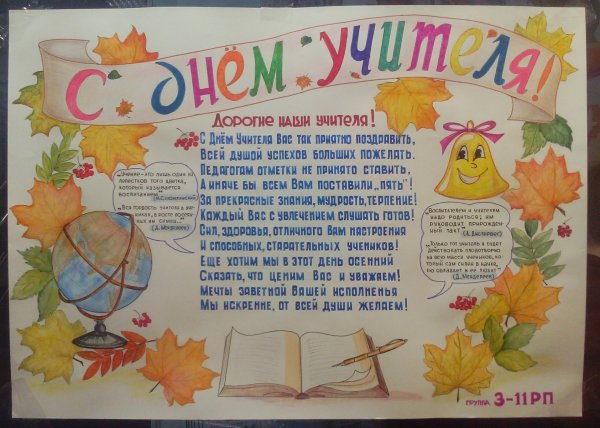 С днём учителя!
Дорогие наши учителя!
С Днём Учителя Вас так приятно поздравить,
Всей душой успехов больших пожелать.
Педагогам отметки не принято ставить,
А иначе бы всем Вам поставили „пять"!
За прекрасные знания, мудрость, терпение!
Каждый Вас с увлечением слушать готов!
Сил, здоровья, отличного Вам настроения
И способных, старательных учеников!
Еще хотим мы в этот день осенний
Сказать, что ценим Вас и уважаем!
Мечты заветной Вашей исполненья
Мы искренне, от всей души желаем!
„Учение – это лишь один из
лепестков того цветка,
который называется
воспитанием"
„Вся гордость учителя в уче-
никах, в росте посеян-
ных им семян..."
(Д. Менделеев)
„Воспитателем и учителем
надо родиться; им
руководит прирожден-
ный такт"
(А. Дистервег)
„Только тот учитель и будет
действовать плодотворно
на всю массу учеников, ко-
торый сам силен в науке,
ею обладает и ее любит"
(Д. Менделеев)
группа 3-11РП